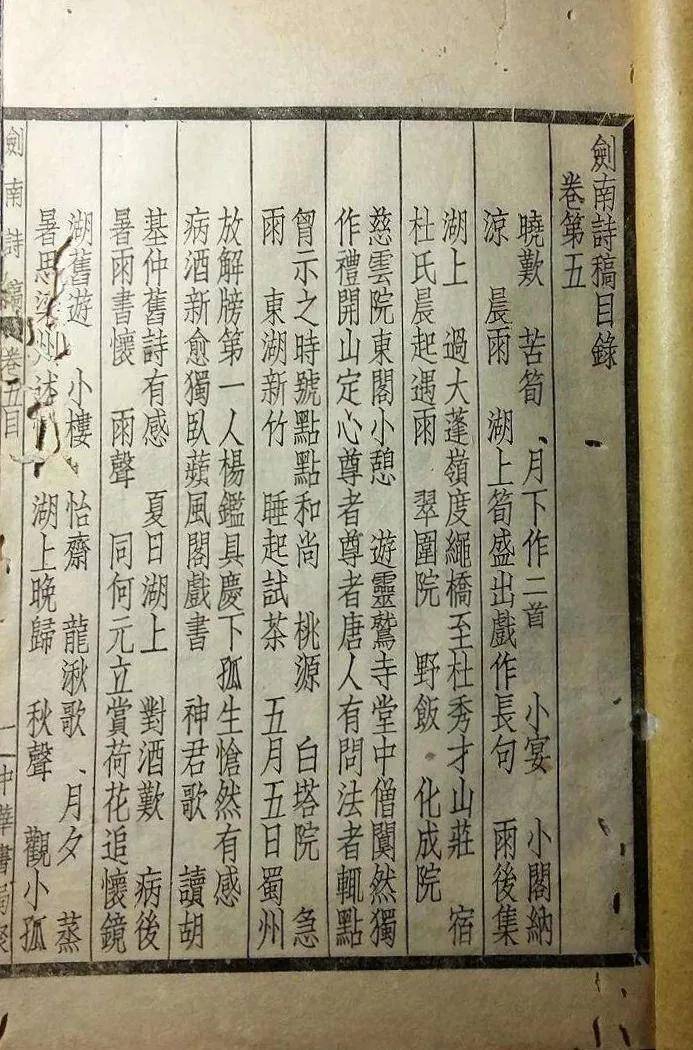 劍南詩稿目錄
卷第五
曉歎 苦筍 月下作二首 小宴 小閣納
涼 晨雨 湖上筍盛出戲作長句 雨後集
湖上 過大蓬嶺度繩橋至杜秀才山莊 宿
杜氏晨起遇雨 翠圍院 野飯 化成院
慈雲院東閣小憩 遊靈鷲寺堂中僧闃然獨
作禮開山定心尊者尊者唐人有問法者輒點
胷示之時號點點和尚 桃源 白塔院 急
雨 東湖新竹 睡起試茶 五月五日蜀州
放解牓第一人楊鑑具慶下孤生愴然有感
病酒新愈獨臥蘋風閣戲書 神君歌 讀胡
基仲舊詩有感 夏日湖上 對酒歎 病後
暑雨書懷 雨聲 同何元立賞荷花追懷鏡
湖舊遊 小樓 怡齋 龍湫歌 月夕 蒸
暑思梁州述 湖上晚歸 秋聲 觀小孤
劍南詩稿 卷五目 一 中華書局聚